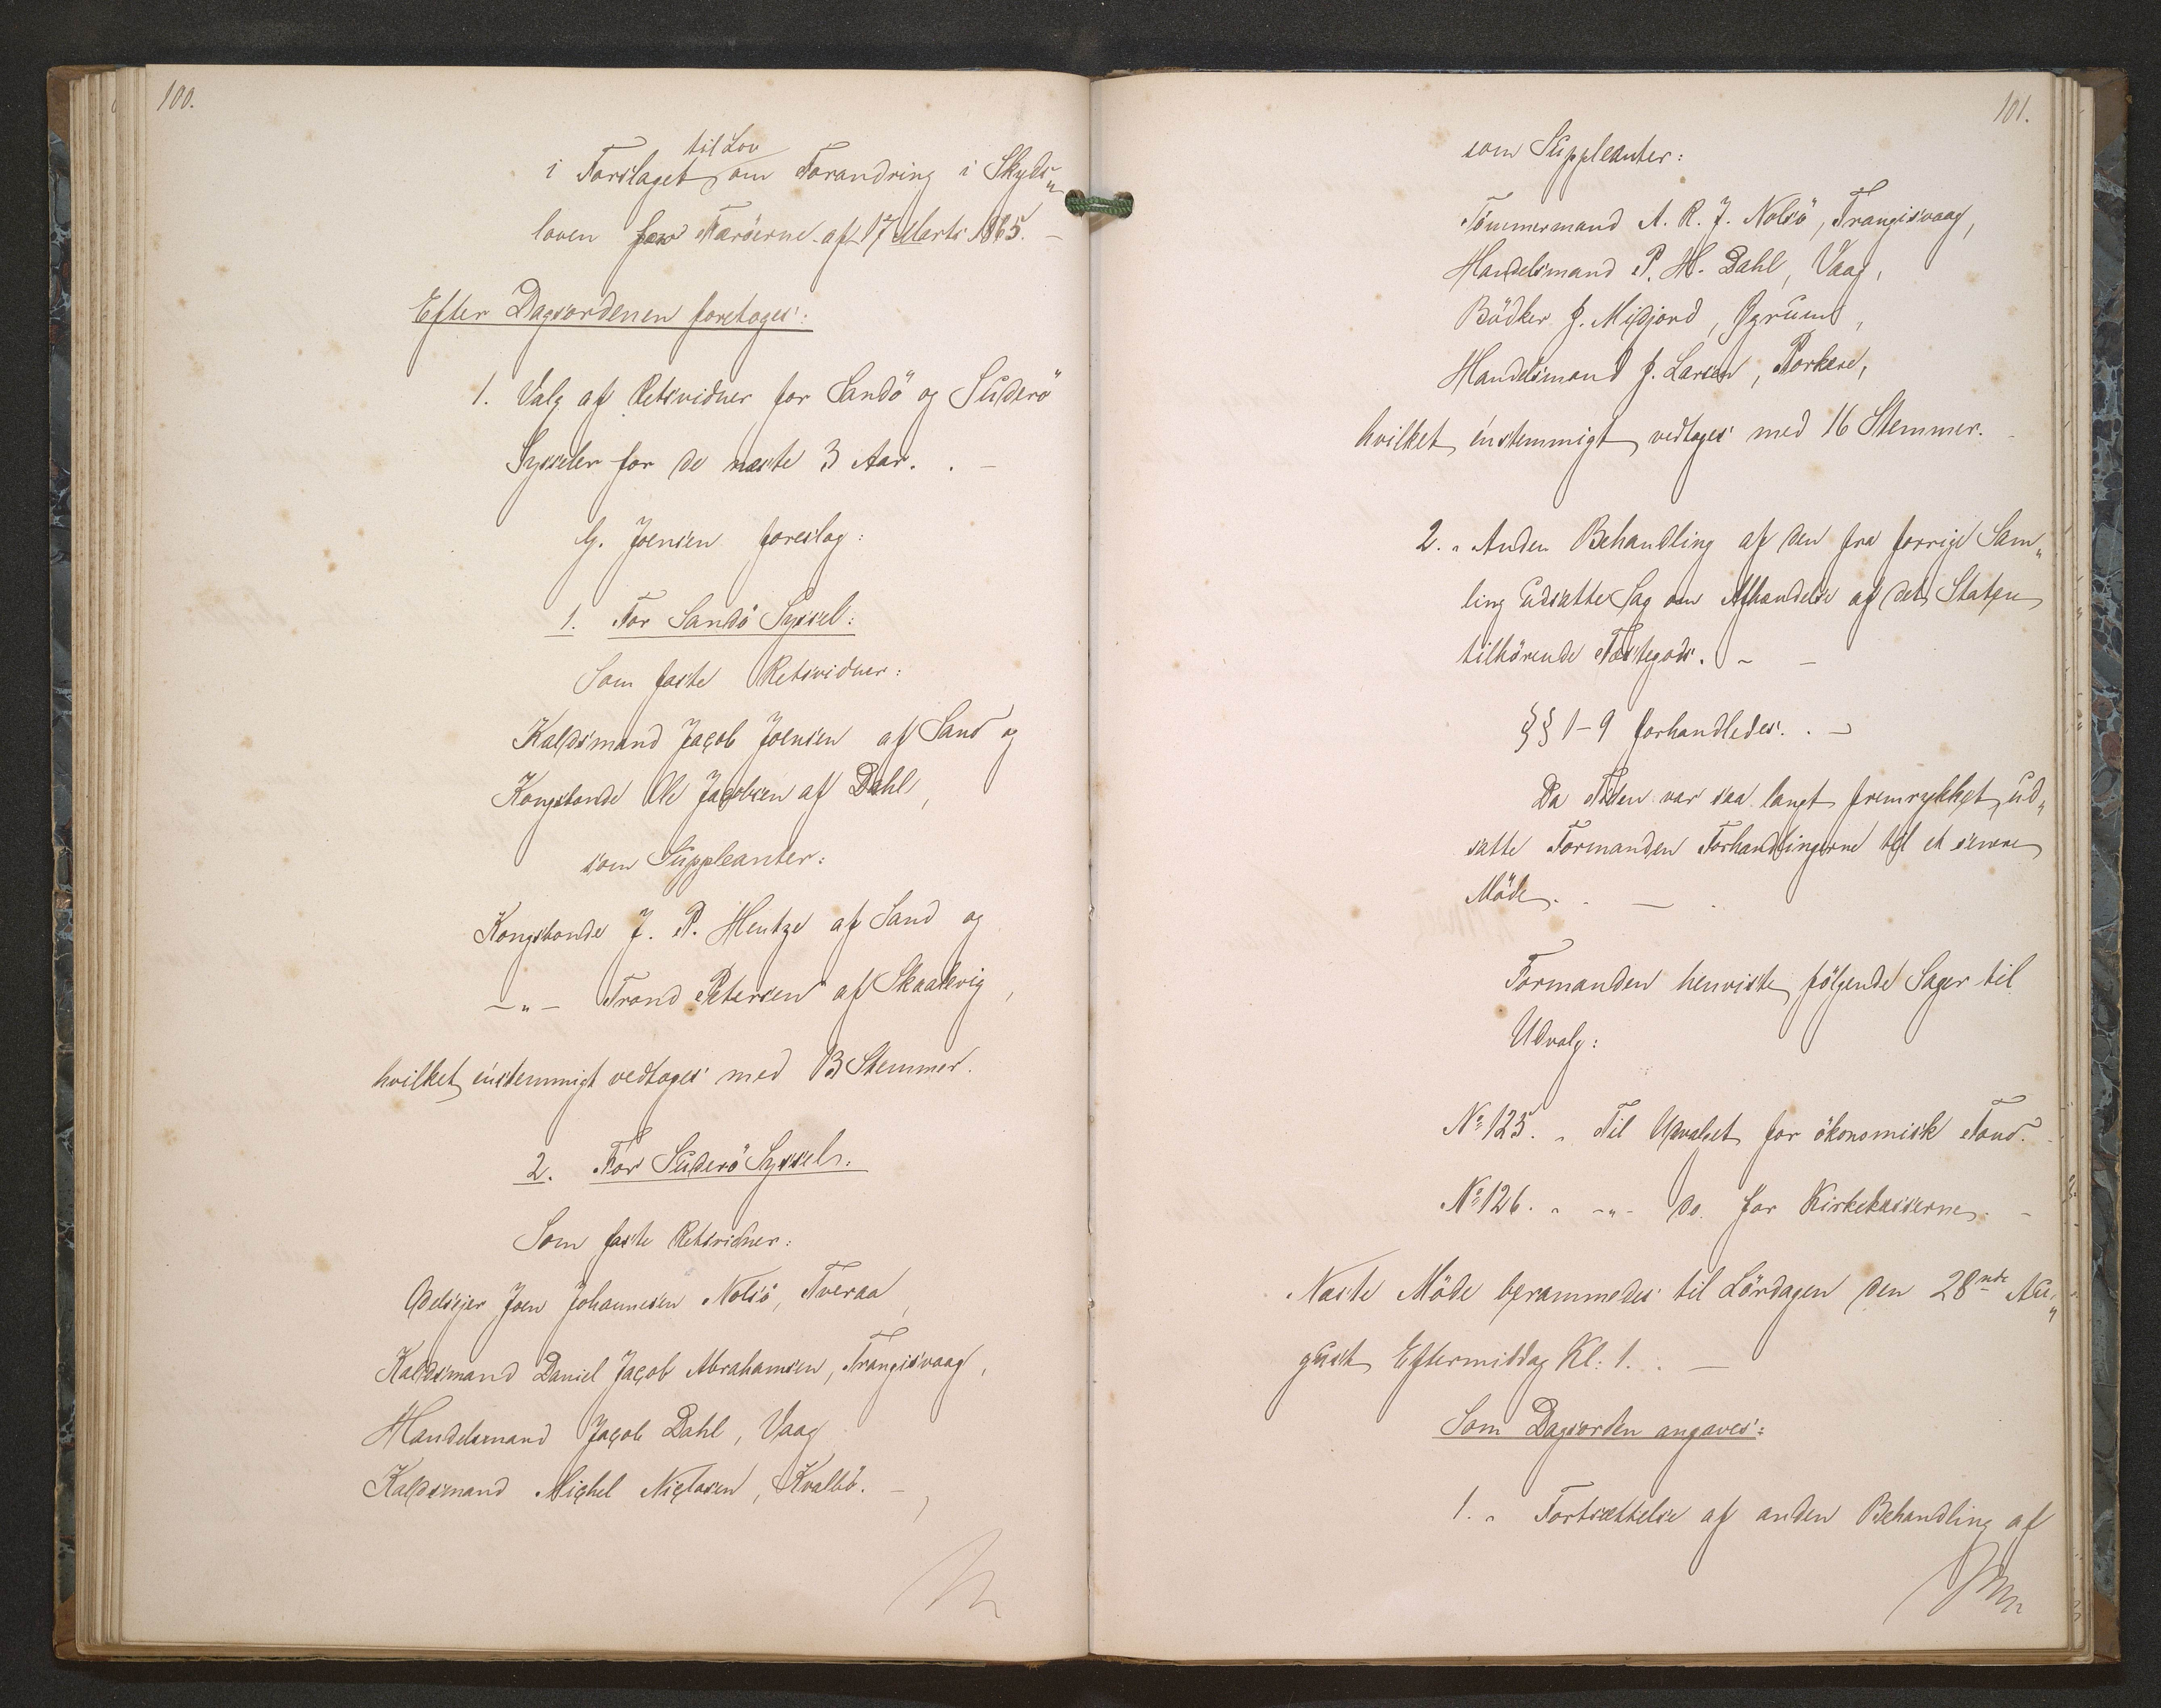 100.
til Lov
i Forslaget om Forandring i Skyds„
loven for Færöerne af 17 Marts 1865. –
Efter Dagsordenen foretoges:
1. Valg af Retsvidner for Sandö og Suderö
Sysseler for de næste 3 Aar. . –
G. Joensen foreslog:
1. For Sandö Syssel:
Som faste Retsvidner:
Kaldsmand Jacob Joensen af Sand og
Kongsbonde Ole Jacobsen af Dahl,
som Suppleanter:
Kongsbonde J. P. Hentze af Sand og
–„– Trond Petersen af Skaalevig,
hvilket enstemmigt vedtoges med 13 Stemmer.
2. For Suderö Syssel:
Som faste Retsvidner:
Odelsejer Joen Johannesen Nolsö, Tveraa,
Kaldsmand Daniel Jacob Abrahamsen, Trangisvaag,
Handelsmand Jacob Dahl, Vaag
Kaldsmand Michel Niclasen, Kvalbö. –,
101.
som Suppleanter:
Tömmermand A. R. J. Nolsö, Trangisvaag,
Handelsmand P. H. Dahl, Vaag,
Bödker J. Midjord, Ögrum,
Handelsmand J. Larsen, Porkere,
hvilket enstemmigt vedtoges med 16 Stemmer. –
2. „ Anden Behandling af den fra forrige Sam„
ling udsatte Sag om Afhændelse af det Staten
tilhörende Fæstegods. – –
§§ 1–9 forhandledes. . –
Da Tiden var saa langt fremrykket, ud„
satte Formanden Forhandlingerne til et senere
Möde. . – .
Formanden henviste fölgende Sager til
Udvalg:
No 125. „ Til Udvalget for ökonomisk Fond. –
No 126. „ –„– do. for Kirkekasserne. –
Næste Möde berammedes til Lördagen den 28nde Au„
gust Eftermiddag Kl: 1. . –
Som Dagsorden angaves:
1. „ Fortsættelse af anden Behandling af